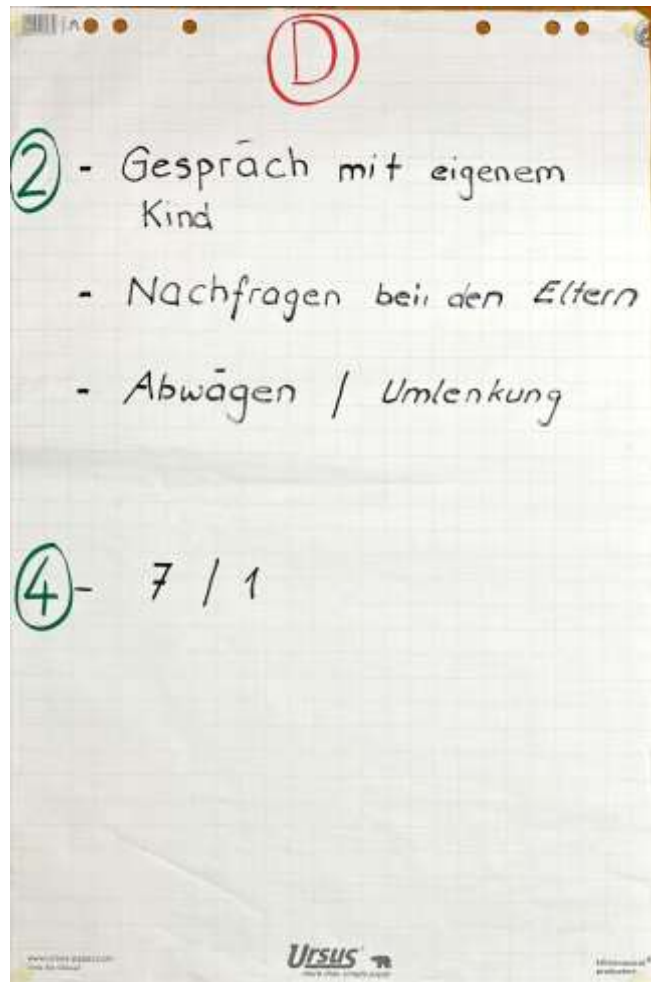 D
2 - Gespräch mit eigenem
Kind
- Nachfragen bei den Eltern
- Abwägen / Umlenkung
4 - 7 / 1
Ursus